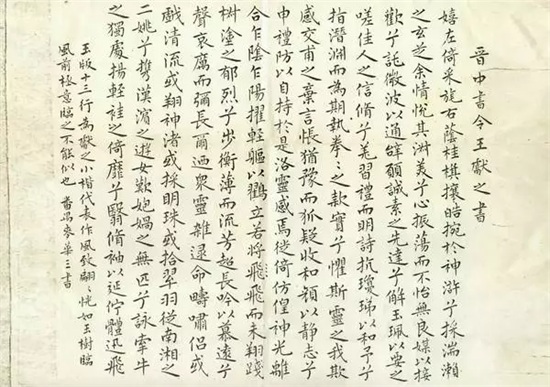 晉中書令王獻之書
嬉左倚采旄右蔭桂旗攘皓捥於神滸兮採湍瀨
之玄芝余情悅其淑美兮心振蕩而不怡無良媒以接
歡兮託微波以通辭願誠素之先達兮解玉珮以要之
嗟佳人之信脩兮羌習禮而明詩抗瓊珶以和予兮
指潛淵而為期執拳〻之款實兮懼斯靈之我欺
感交甫之棄言悵猶豫而狐疑收和顏以靜志兮
申禮防以自持於是洛靈感焉徙倚仿偟神光離
合乍陰乍陽擢輕軀以鶴立若將飛飛而未翔踐
椒塗之郁烈兮步衡薄而流芳超長吟以慕遠兮
聲哀厲而彌長爾迺眾靈雜遝命疇嘯侶或
戲清流或翔神渚或採明珠或拾翠羽從南湘之
二姚兮攜漢濱之遊女歎媧之無匹兮詠牽牛
之獨處揚輕袿之倚靡兮翳脩袖以延佇體迅飛
玉版十三行為獻之小楷代表作風致翩〻恍如玉樹臨
風前極意臨之不能似也 番禺麥華三書